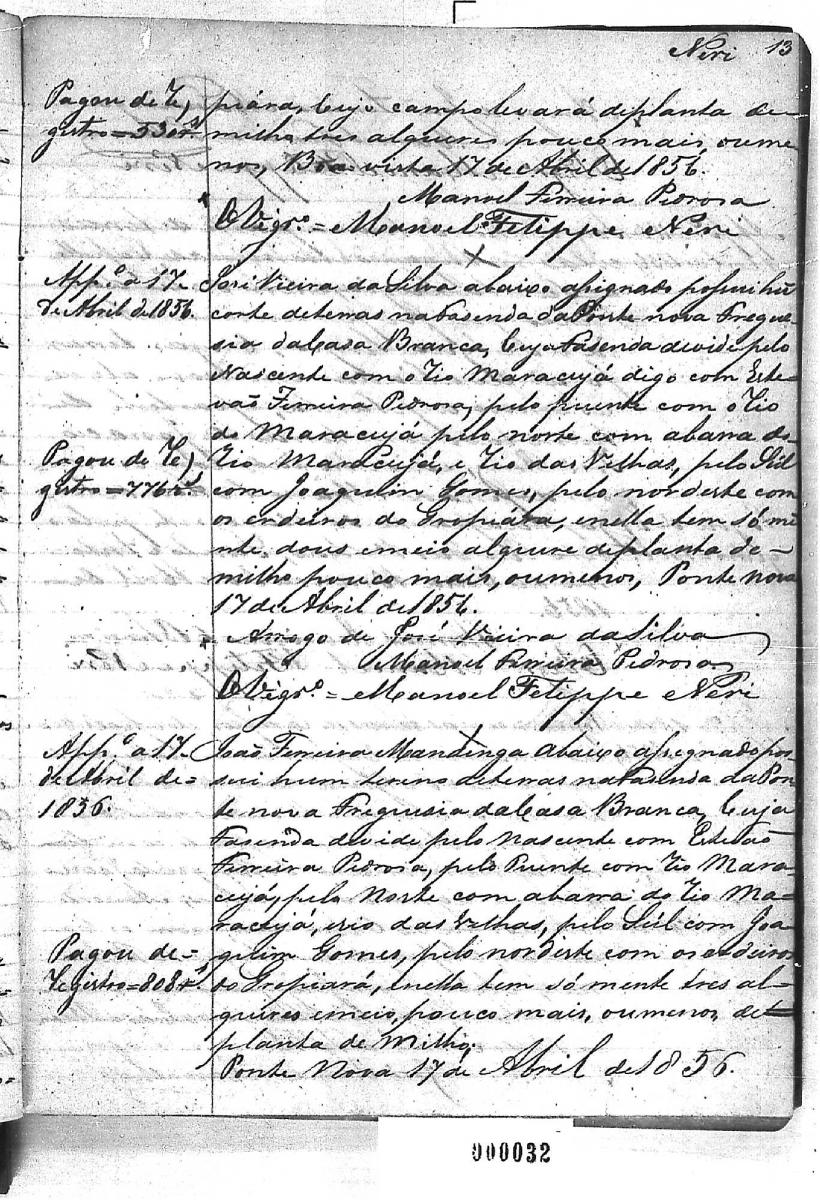 Neri 13
Pagou de Re
gistro=530 rs
piára, Cujo campo levará deplanta de
milho tres alqueres pouco mais, oume
nos, Boa vista 17 de Abril de 1856.
Manoel Ferreira Pedrosa
OVigr.º = Manoel Felippe Neri
App.º a 17
de Abril de 1856.
José Vieira da Silva abaixo assignado possui hũ
corte deterras nafasenda da Ponte nova Fregue-
sia daCasa Branca, Cuja Fasenda devide pelo
Nascente com o Rio Maracujá digo com Este-
vaõ Ferreira Pedrosa, pelo puente com o Rio
do Maracujá pelo norte com abarra do
Pagou de Re
gistro=776 rs
Rio Maracujá, e Rio das Velhas, pelo Sul
com Joaquim Gomes, pelo nordeste com
os erdeiros do Gropiára, enella tem só mẽ
nte, dous emeio alquere deplanta de-
milho pouco mais, oumenos, Ponte Nova
17 de Abril de 1856.
Arrogo de José Vieira da Silva
Manoel Ferreira Pedrosa
OVigr.º = Manoel Felippe Neri
App.º a 17
de Abril de=
1856.
João Ferreira Mandinga abaixo assegnado pos-
sui hum tereno deterras nafasenda da Pon
te nova Freguesia daCasa Branca, Cuja
Fasenda devide pelo Nascente com Estevaõ
Ferreira Pedrosa, pelo Puente com Rio Mara-
cujá, pelo Norte com abarra do Rio Ma=
racujá, erio das Velhas, pelo Sul com Joa-
quim Gomes, pelo nordeste com os erdeiros
Pagou de=
Registro=808 rs
do Gropiará, enella tem só mente tres al-
queres emeio, pouco mais, oumenos, de
planta de Milho,
Ponte Nova 17 de Abril de 1856.
000032